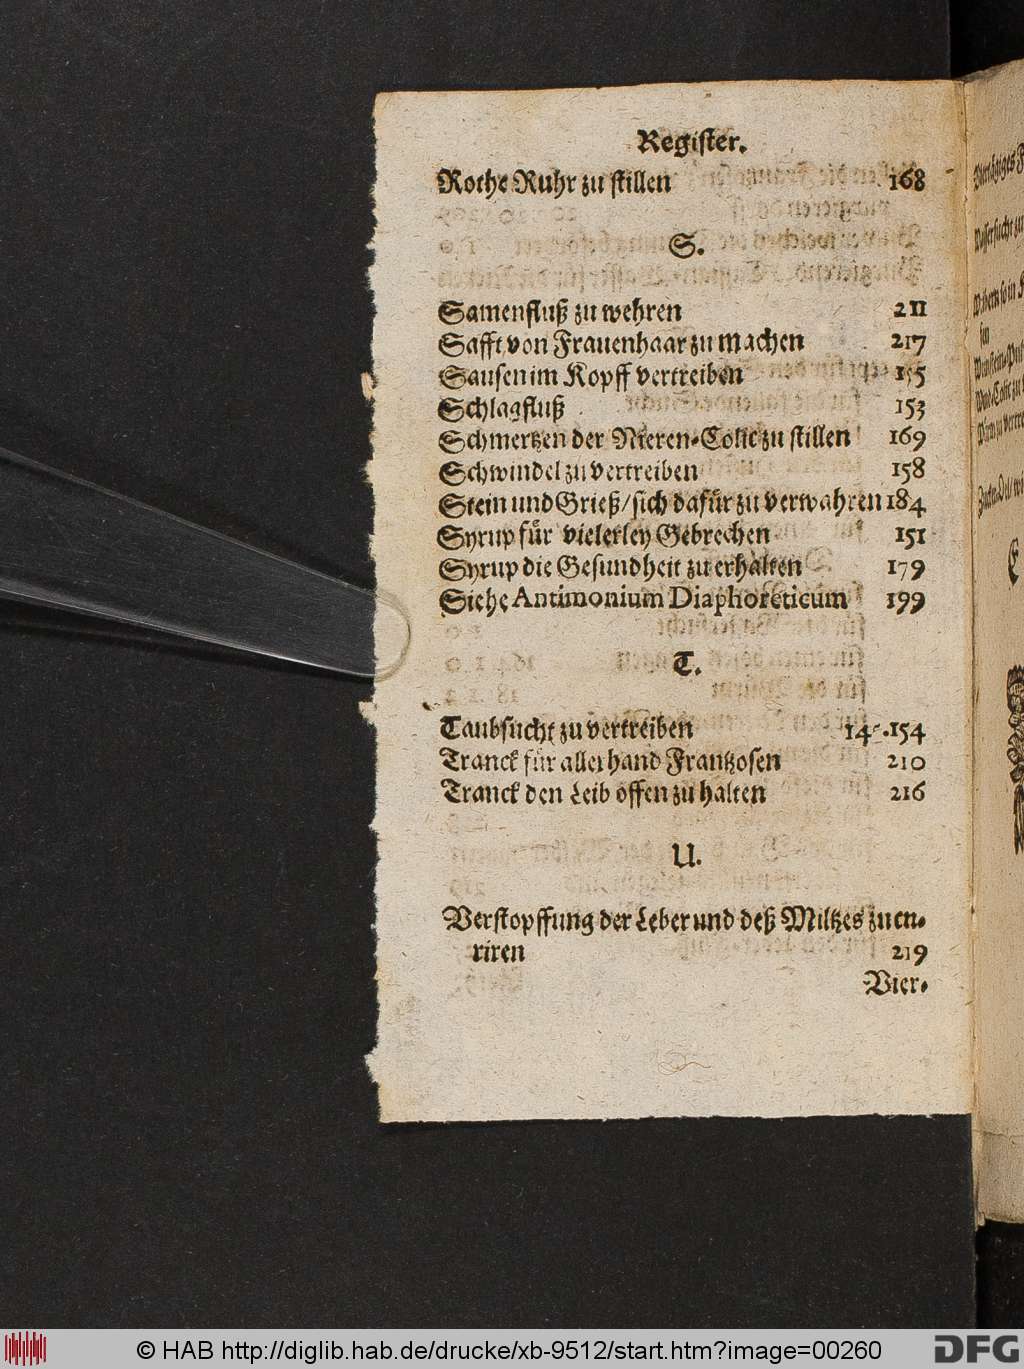 Regiſter.
Rothe Ruhr zu ſtillen 168
S.
Samenfluß zu wehren 211
Safft von Frauenhaar zu machen 217
Sauſen im Kopff vertreiben 155
Schlagfluß 153
Schmertzen der Nieren-Colic zu ſtillen 169
Schwindel zu vertreiben 158
Stein und Grieß / ſich dafür zu verwahren 184
Syrup für vielerley Gebrechen 151
Syrup die Geſundheit zu erhalten 179
Siehe Antimonium Diaphoreticum 199
T.
Taubſucht zu vertreiben 154
Tranck für allerhand Frantzoſen 210
Tranck den Leib offen zu halten 216
U.
Verſtopffung der Leber und deß Miltzes zu cu-
riren 219
Vier-
© HAB http://diglib.hab.de/drucke/xb-9512/start.htm?image=00260
DFG